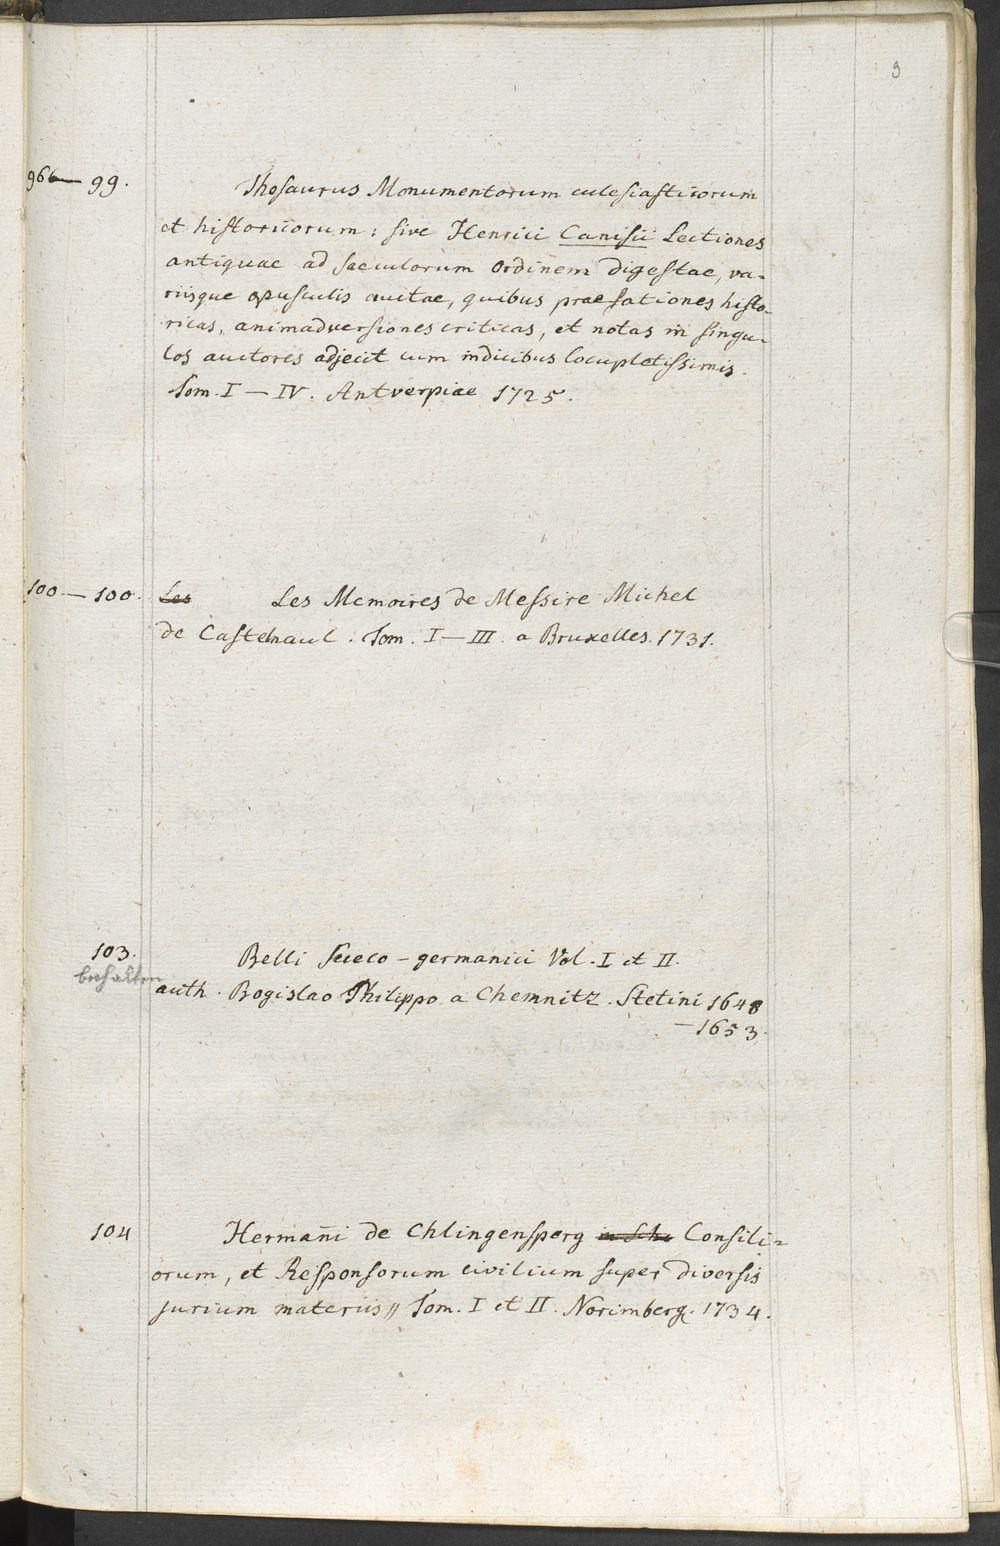 9
966 — 99. Thesaurus Monumentorum eclesiasticorum
et historicorum: sive Henrici Canisii Lectiones
antiquae ad saeculorum ordinem digestae, va-
riisque opusculis auctae, quibus praefationes histo-
ricas, animadversiones criticas, et notas in singu-
los auctores adjecit cum indicibus locupletissimis.
Tom. I — IV. Antverpiae 1725.
100 — 100. Les Les Memoires de Messire Michel
de Castelnaul. Tom. I — III. a Bruxelles. 1731.
103. Belli Sueco-germanici Vol. I et II.
behalten
auth. Bogislao Philippo a Chemnitz. Stetini 1648
— 1653.
104 Hermañi de Chlingensperg Consili-
orum, et Responsorum civilium super diversis
jurium materiis, Tom. I et II. Norimberg. 1734.